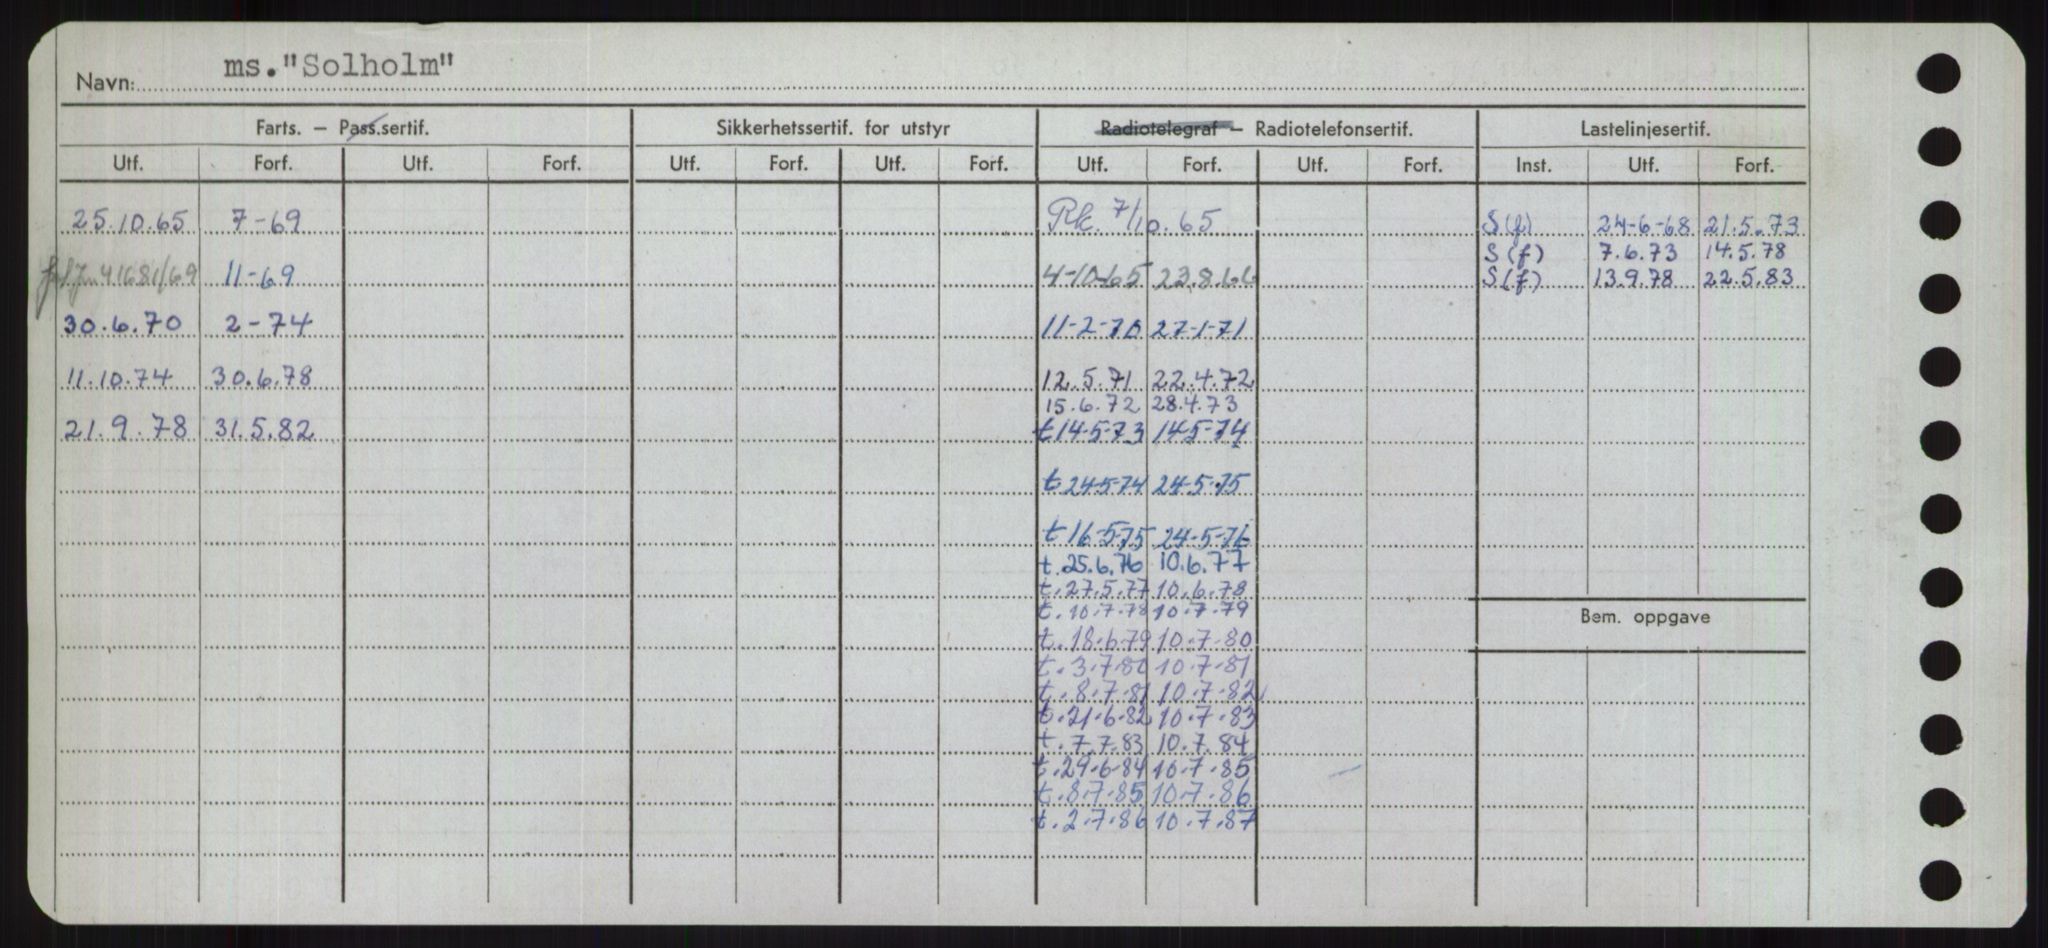 Navn: ms."Solholm"
Farts. – Pass.sertif. Sikkerhetssertif. for utstyr Radiotelegraf – Radiotelefonsertif. Lastelinjesertif.
Utf. Forf. Utf. Forf. Utf. Forf. Utf. Forf. Utf. Forf. Utf. Forf. Inst. Utf. Forf.
25.10.65 7-69 Rk. 7/10.65 S(f) 24-6-68 21.5.73
S(f) 7.6.73 14.5.78
41681/69 11-69 4-10-65 23.8.66 S(f) 13.9.78 22.5.83
30.6.70 2-74 11-2-70 27-1-71
11.10.74 30.6.78 12.5.71 22.4.72
15.6.72 28.4.73
21.9.78 31.5.82 t14-5-73 14-5-74
t 24-5-74 24-5-75
t 16-5-75 24-5-76
t.25.6.76 10.6.77
t.27.5.77 10.6.78
t.10.7.78 10.7.79
Bem. oppgave
t.18.6.79 10.7.80
t.3.7.80 10.7.81
t.8.7.81 10.7.82
t.21.6.82 10.7.83
t.7.7.83 10.7.84
t.29.6.84 10.7.85
t.8.7.85 10.7.86
t.2.7.86 10.7.87